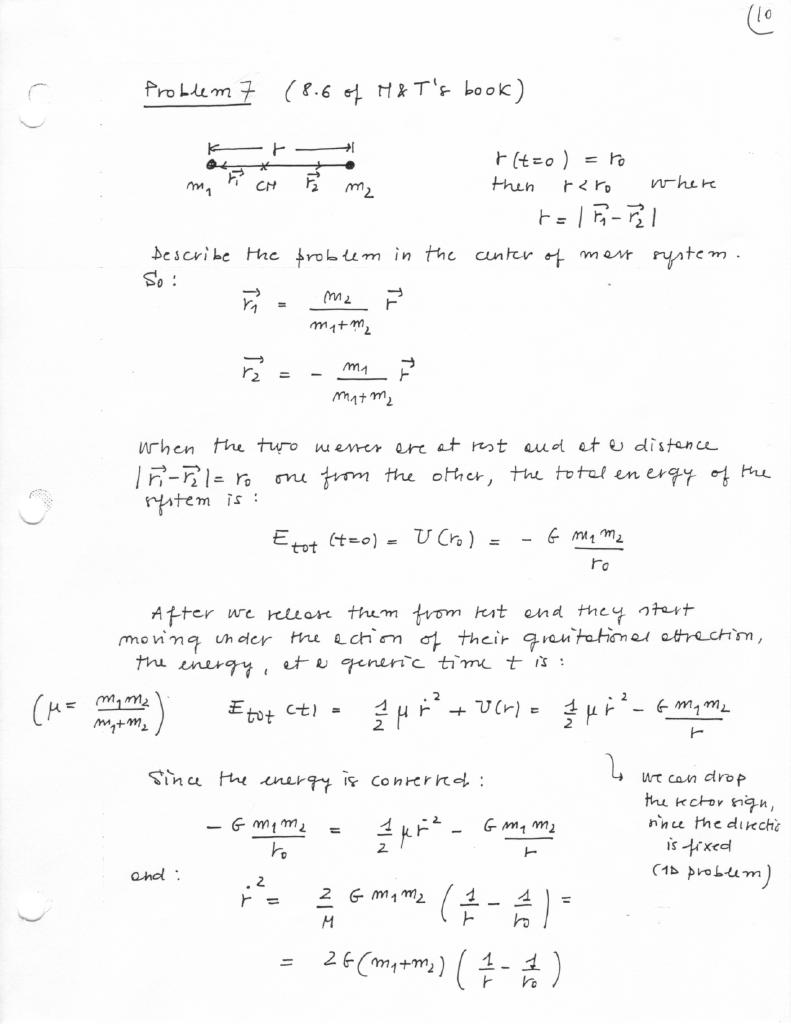 (10
Problem 7 (8.6 of M&T's book)
r
m₁ r⃗₁ CM r⃗₂ m₂
r(t=0) = r₀
then r<r₀ where
r = |r⃗₁-r⃗₂|
Describe the problem in the center of mass system.
So:
r⃗₁ = m₂/(m₁+m₂) r⃗
r⃗₂ = - m₁/(m₁+m₂) r⃗
When the two masses are at rest and at a distance
|r⃗₁-r⃗₂| = r₀ one from the other, the total energy of the
system is:
E_tot (t=0) = U(r₀) = - G m₁m₂/r₀
After we release them from rest and they start
moving under the action of their gravitational attraction,
the energy, at a generic time t is:
(μ = m₁m₂/(m₁+m₂)) E_tot (t) = 1/2 μ ṙ² + U(r) = 1/2 μ ṙ² - G m₁m₂/r
↳ we can drop
the vector sign,
since the directio
is fixed
(1D problem)
Since the energy is conserved:
- G m₁m₂/r₀ = 1/2 μ ṙ² - G m₁m₂/r
and:
ṙ² = 2/μ G m₁m₂ (1/r - 1/r₀) =
= 2G(m₁+m₂) (1/r - 1/r₀)